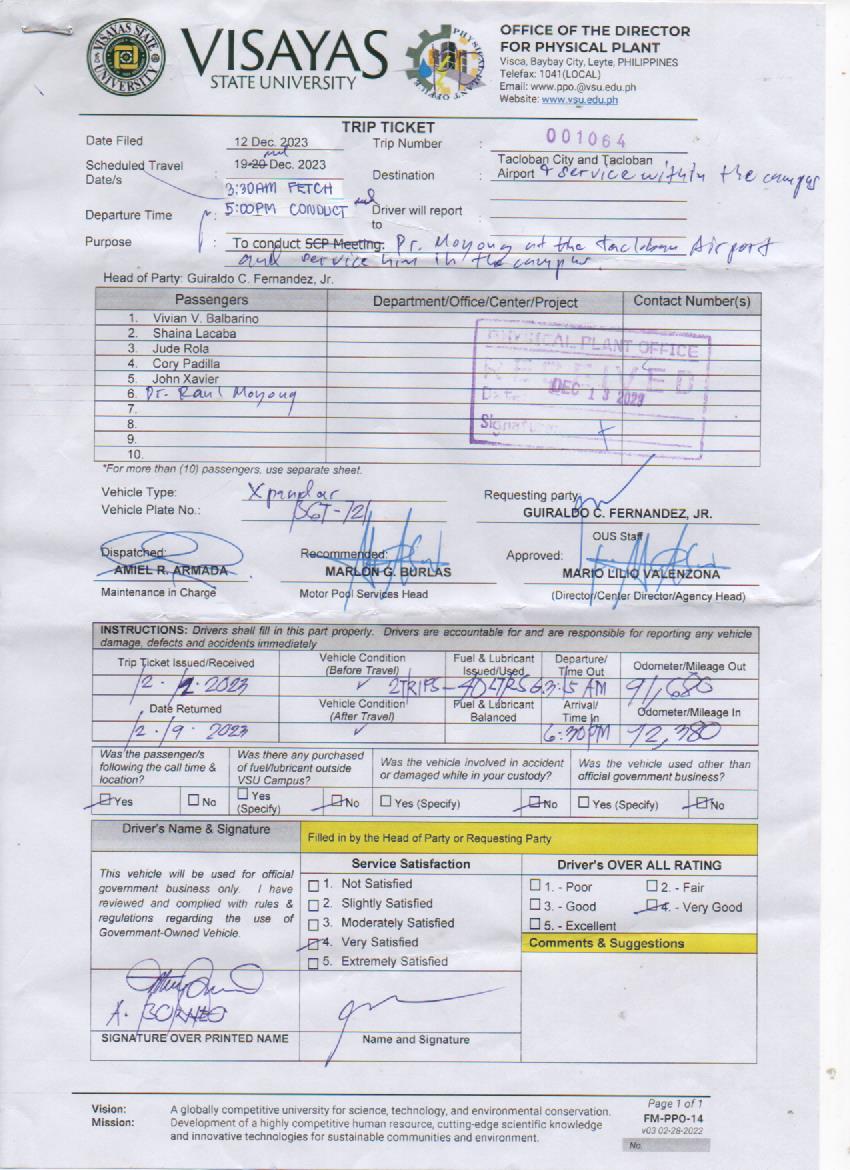 VISAYAS
STATE UNIVERSITY
VISAYAS STATE UNIVERSITY
PHYSICAL PLANT OFFICE
OFFICE OF THE DIRECTOR
FOR PHYSICAL PLANT
Visca, Baybay City, Leyte, PHILIPPINES
Telefax: 1041(LOCAL)
Email: www.ppo.@vsu.edu.ph
Website: www.vsu.edu.ph
TRIP TICKET
Date Filed 12 Dec. 2023 Trip Number : 001064
Scheduled Travel Date/s : 19-20 Dec. 2023 Destination : Tacloban City and Tacloban Airport & service within the campus
3:30AM FETCH
Departure Time : 5:00PM CONDUCT Driver will report to :
Purpose : To conduct SCP Meeting. Dr. Moyong at the Tacloban Airport
and service him in the campus.
Head of Party: Guiraldo C. Fernandez, Jr.
Passengers Department/Office/Center/Project Contact Number(s)
1. Vivian V. Balbarino
2. Shaina Lacaba
3. Jude Rola
4. Cory Padilla
5. John Xavier
6. Dr. Raul Moyong
7.
8.
9.
10.
PHYSICAL PLANT OFFICE
RECEIVED
Date: DEC 13 2023
Signature:
*For more than (10) passengers, use separate sheet.
Vehicle Type: Xpandar Requesting party:
Vehicle Plate No.: GUIRALDO C. FERNANDEZ, JR.
OUS Staff
Dispatched: Recommended: Approved:
AMIEL R. ARMADA MARLON G. BURLAS MARIO LILIO VALENZONA
Maintenance in Charge Motor Pool Services Head (Director/Center Director/Agency Head)
INSTRUCTIONS: Drivers shall fill in this part properly. Drivers are accountable for and are responsible for reporting any vehicle
damage, defects and accidents immediately
Trip Ticket Issued/Received Vehicle Condition (Before Travel) Fuel & Lubricant Issued/Used Departure/ Time Out Odometer/Mileage Out
2023 ✓ 2TRIPS - 40LTRS 3:15 AM 91,680
Date Returned Vehicle Condition (After Travel) Fuel & Lubricant Balanced Arrival/ Time In Odometer/Mileage In
2023 ✓ 6:30PM 12,380
Was the passenger/s following the call time & location? Was there any purchased of fuel/lubricant outside VSU Campus? Was the vehicle involved in accident or damaged while in your custody? Was the vehicle used other than official government business?
Yes No Yes (Specify) No Yes (Specify) No Yes (Specify) No
Driver's Name & Signature Filled in by the Head of Party or Requesting Party
Service Satisfaction Driver's OVER ALL RATING
This vehicle will be used for official
government business only. I have
reviewed and complied with rules &
regulations regarding the use of
Government-Owned Vehicle.
1. Not Satisfied
2. Slightly Satisfied
3. Moderately Satisfied
4. Very Satisfied
5. Extremely Satisfied
1. - Poor 2. - Fair
3. - Good 4. - Very Good
5. - Excellent
Comments & Suggestions
A. BORNEO
SIGNATURE OVER PRINTED NAME Name and Signature
Vision: A globally competitive university for science, technology, and environmental conservation.
Mission: Development of a highly competitive human resource, cutting-edge scientific knowledge
and innovative technologies for sustainable communities and environment.
Page 1 of 1
FM-PPO-14
v03 02-28-2022
No.